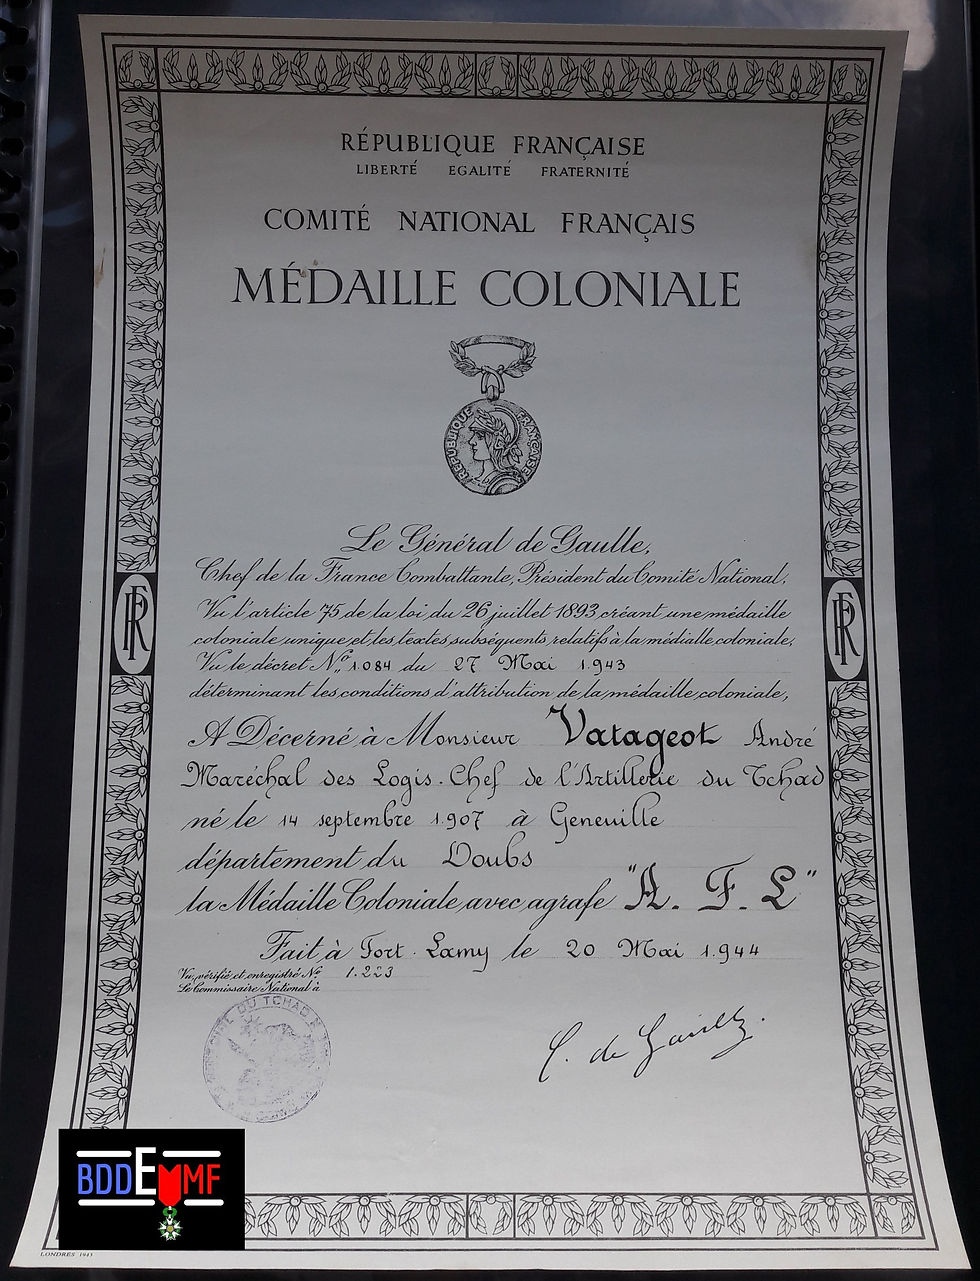 RÉPUBLIQUE FRANÇAISE
LIBERTÉ EGALITÉ FRATERNITÉ
COMITÉ NATIONAL FRANÇAIS
MÉDAILLE COLONIALE
RÉPUBLIQUE FRANÇAISE
Le Général de Gaulle,
Chef de la France Combattante, Président du Comité National,
Vu l'article 75 de la loi du 26 juillet 1893 créant une médaille
coloniale unique et les textes subséquents relatifs à la médialle coloniale,
Vu le décret Nº 1.084 du 27 Mai 1.943
déterminant les conditions d'attribution de la médaille coloniale,
RF
RF
A Décerné à Monsieur Vatageot André
Maréchal des Logis-Chef de l'Artillerie du Tchad
né le 14 septembre 1.907 à Geneuille
département du Doubs
la Médaille Coloniale avec agrafe "A. F. L"
Fait à Fort-Lamy le 20 Mai 1.944
Vu, vérifié et enregistré Nº 1.223
Le Commissaire National à
DU TCHAD
C. de Gaulle.
BDDEMMF
LONDRES 1943